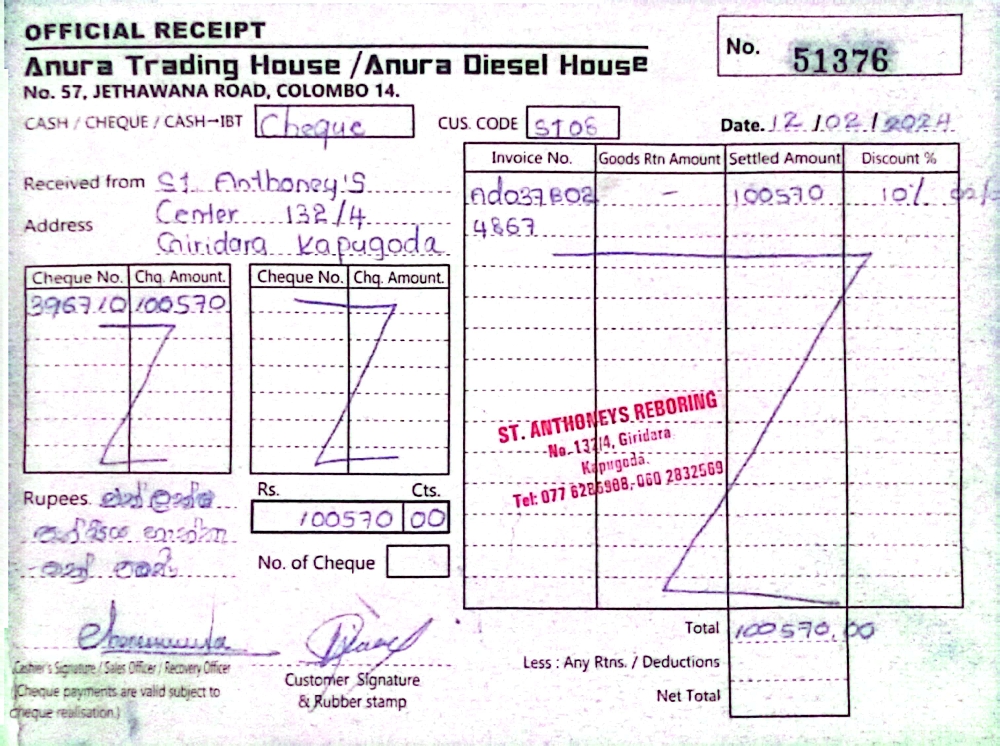 OFFICIAL RECEIPT
Anura Trading House /Anura Diesel House
No. 57, JETHAWANA ROAD, COLOMBO 14.
No. 51376
CASH / CHEQUE / CASH→IBT Cheque
CUS. CODE ST06
Date. 12/02/2024
Received from St. Anthoney's
Address Center 132/4
Giridara Kapugoda
Invoice No. Goods Rtn Amount Settled Amount Discount %
Ad037B02 - 100570 10%
4867
Cheque No. Chq. Amount. Cheque No. Chq. Amount.
396710 100570
ST. ANTHONEYS REBORING
No. 132/4, Giridara
Kapugoda.
Tel: 077 6286908, 060 2832569
Rupees.
Rs. Cts.
100570 00
No. of Cheque
Total 100570.00
Less : Any Rtns. / Deductions
Net Total
Cashier's Signature / Sales Officer / Recovery Officer
(Cheque payments are valid subject to
cheque realisation.)
Customer Signature
& Rubber stamp